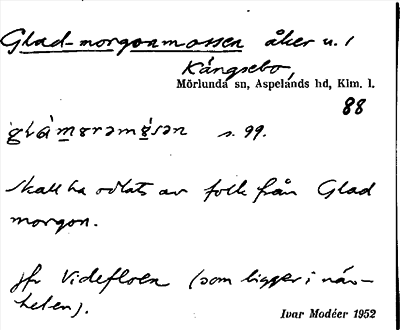 Glad-morgonmossen åker u. 1
Kångsebo,
Mörlunda sn, Aspelands hd, Klm. l.
88
s. 99.
skall ha odlats av folk från Glad
morgon.
jfr Videfloen (som ligger i när-
heten).
Ivar Modéer 1952